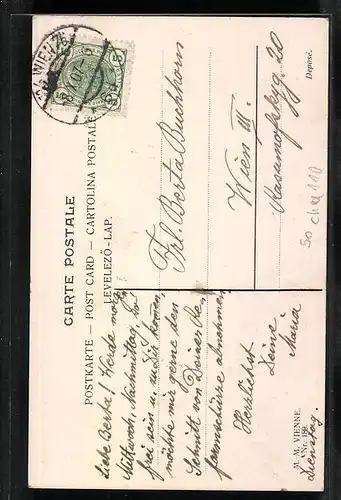 CARTE POSTALE
POSTKARTE — POST CARD — CARTOLINA POSTALE
LEVELEZŐ-LAP.
WIEN
5
5
Frl. Berta Buchhorn
Wien III.
20
Deposé.
50 110
Liebe Berta! Werde
Mittwoch, Nachmittag,
frei sein u. zu dir kommen,
möchte mir gerne den
Schnitt von
abnehmen
Herzlichst
Deine
Maria
M. M. VIENNE.
Nr. 189
Dienstag.